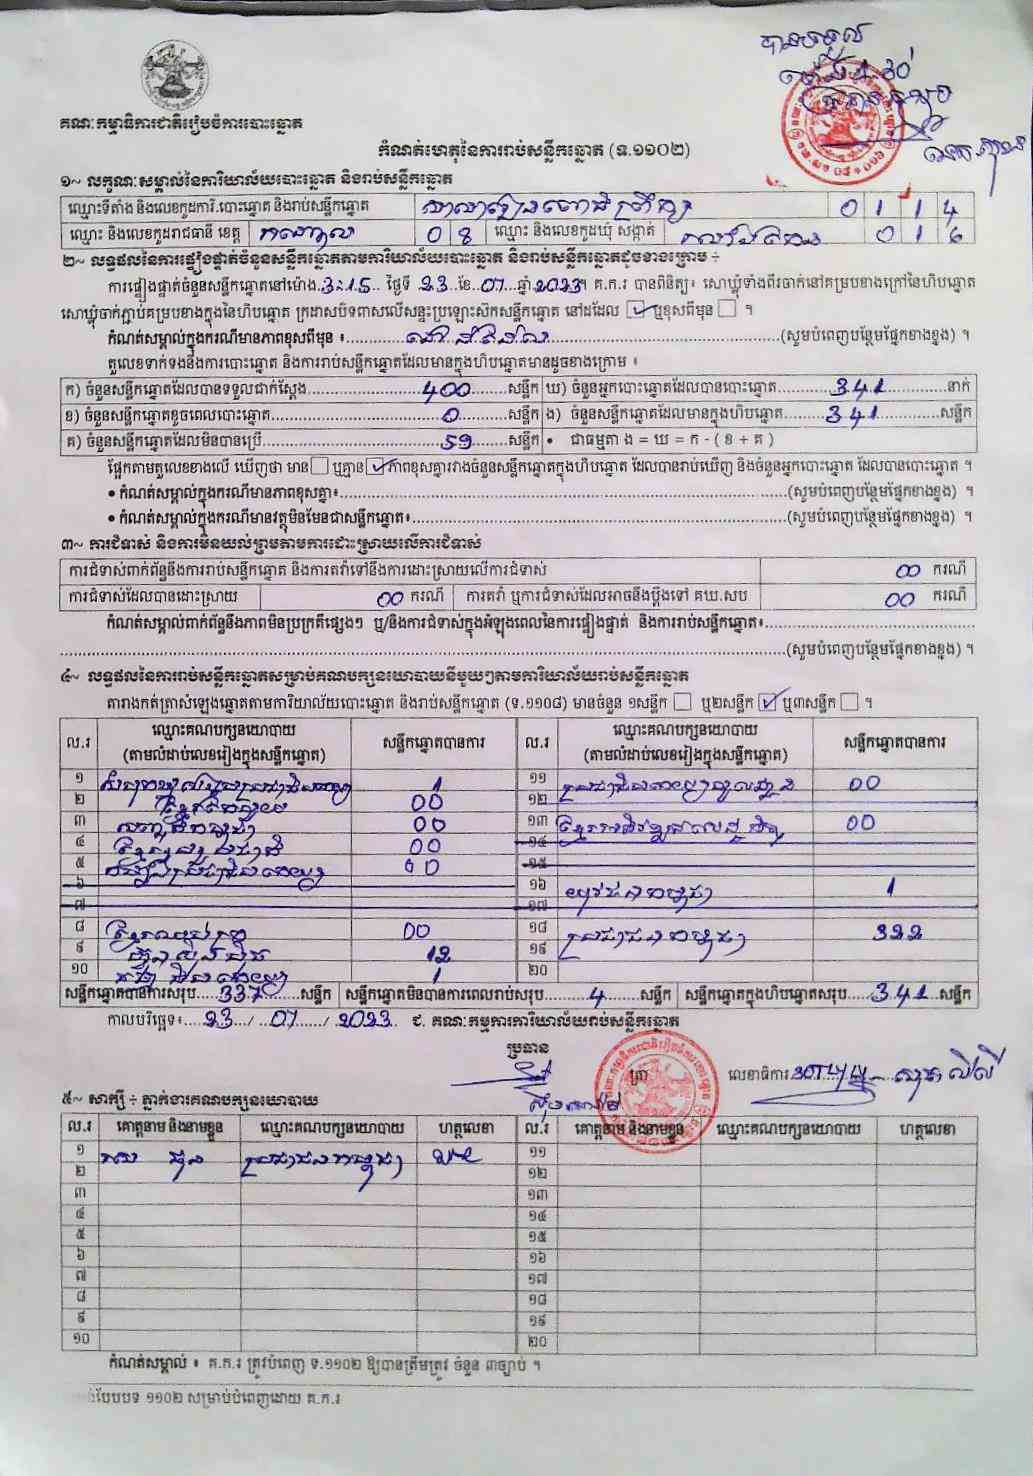 គណៈកម្មាធិការជាតិរៀបចំការបោះឆ្នោត
បានទទួល
កំណត់ហេតុនៃការរាប់សន្លឹកឆ្នោត (ទ.១១០២)
១~ លក្ខណៈសម្គាល់នៃការិយាល័យបោះឆ្នោត និងរាប់សន្លឹកឆ្នោត
ឈ្មោះទីតាំង និងលេខកូដការិ.បោះឆ្នោត និងរាប់សន្លឹកឆ្នោត 0 1 1 4
ឈ្មោះ និងលេខកូដរាជធានី ខេត្ត កណ្តាល 0 8 ឈ្មោះ និងលេខកូដឃុំ សង្កាត់ 0 1 6
២~ លទ្ធផលនៃការផ្ទៀងផ្ទាត់ចំនួនសន្លឹកឆ្នោតតាមការិយាល័យបោះឆ្នោត និងរាប់សន្លឹកឆ្នោតដូចខាងក្រោម ÷
ការផ្ទៀងផ្ទាត់ចំនួនសន្លឹកឆ្នោតនៅម៉ោង 3:15 ថ្ងៃទី 23 ខែ 07 ឆ្នាំ 2023។ គ.ក.រ បានពិនិត្យ៖ សោឃ្លុំទាំងពីរចាក់នៅគម្របខាងក្រៅនៃហិបឆ្នោត
សោឃ្លុំចាក់ភ្ជាប់គម្របខាងក្នុងនៃហិបឆ្នោត ក្រដាសបិទពាសលើសន្ទះប្រឡោះស៊កសន្លឹកឆ្នោត នៅដដែល ☑ ឬខុសពីមុន ☐ ។
កំណត់សម្គាល់ក្នុងករណីមានភាពខុសពីមុន ៖ នៅដដែល (សូមបំពេញបន្ថែមផ្នែកខាងខ្នង) ។
តួលេខទាក់ទងនឹងការបោះឆ្នោត និងការរាប់សន្លឹកឆ្នោតដែលមានក្នុងហិបឆ្នោតមានដូចខាងក្រោម ៖
ក) ចំនួនសន្លឹកឆ្នោតដែលបានទទួលជាក់ស្តែង 400 សន្លឹក ឃ) ចំនួនអ្នកបោះឆ្នោតដែលបានបោះឆ្នោត 341 នាក់
ខ) ចំនួនសន្លឹកឆ្នោតខូចពេលបោះឆ្នោត 0 សន្លឹក ង) ចំនួនសន្លឹកឆ្នោតដែលមានក្នុងហិបឆ្នោត 341 សន្លឹក
គ) ចំនួនសន្លឹកឆ្នោតដែលមិនបានប្រើ 59 សន្លឹក • ជាធម្មតា ង = ឃ = ក - ( ខ + គ )
ផ្អែកតាមតួលេខខាងលើ ឃើញថា មាន ☐ ឬគ្មាន ☑ ភាពខុសគ្នារវាងចំនួនសន្លឹកឆ្នោតក្នុងហិបឆ្នោត ដែលបានរាប់ឃើញ និងចំនួនអ្នកបោះឆ្នោត ដែលបានបោះឆ្នោត ។
• កំណត់សម្គាល់ក្នុងករណីមានភាពខុសគ្នា៖ (សូមបំពេញបន្ថែមផ្នែកខាងខ្នង) ។
• កំណត់សម្គាល់ក្នុងករណីមានវត្ថុមិនមែនជាសន្លឹកឆ្នោត៖ (សូមបំពេញបន្ថែមផ្នែកខាងខ្នង) ។
៣~ ការជំទាស់ និងការមិនយល់ព្រមតាមការដោះស្រាយលើការជំទាស់
ការជំទាស់ពាក់ព័ន្ធនឹងការរាប់សន្លឹកឆ្នោត និងការតវ៉ាទៅនឹងការដោះស្រាយលើការជំទាស់ 00 ករណី
ការជំទាស់ដែលបានដោះស្រាយ 00 ករណី ការតវ៉ា ឬការជំទាស់ដែលអាចនឹងប្តឹងទៅ គឃ.សប 00 ករណី
កំណត់សម្គាល់ពាក់ព័ន្ធនឹងភាពមិនប្រក្រតីផ្សេងៗ ឬ/និងការជំទាស់ក្នុងអំឡុងពេលនៃការផ្ទៀងផ្ទាត់ និងការរាប់សន្លឹកឆ្នោត៖
(សូមបំពេញបន្ថែមផ្នែកខាងខ្នង) ។
៤~ លទ្ធផលនៃការរាប់សន្លឹកឆ្នោតសម្រាប់គណបក្សនយោបាយនីមួយៗតាមការិយាល័យរាប់សន្លឹកឆ្នោត
តារាងកត់ត្រាសំឡេងឆ្នោតតាមការិយាល័យបោះឆ្នោត និងរាប់សន្លឹកឆ្នោត (ទ.១១០៨) មានចំនួន ១សន្លឹក ☐ ឬ២សន្លឹក ☑ ឬ៣សន្លឹក ☐ ។
ល.រ ឈ្មោះគណបក្សនយោបាយ (តាមលំដាប់លេខរៀងក្នុងសន្លឹកឆ្នោត) សន្លឹកឆ្នោតបានការ ល.រ ឈ្មោះគណបក្សនយោបាយ (តាមលំដាប់លេខរៀងក្នុងសន្លឹកឆ្នោត) សន្លឹកឆ្នោតបានការ
១ 1 ១១ 00
២ 00 ១២
៣ 00 ១៣ 00
៤ 00 ១៤
៥ 00 ១៥
៦ ១៦ យុវជនកម្ពុជា 1
៧ ១៧
៨ 00 ១៨ ប្រជាជនកម្ពុជា 322
៩ ហ្វ៊ុនស៊ិនប៉ិច 12 ១៩
១០ 1 ២០
សន្លឹកឆ្នោតបានការសរុប 337 សន្លឹក សន្លឹកឆ្នោតមិនបានការពេលរាប់សរុប 4 សន្លឹក សន្លឹកឆ្នោតក្នុងហិបឆ្នោតសរុប 341 សន្លឹក
កាលបរិច្ឆេទ៖ 23 / 07 / 2023 ជ. គណៈកម្មការការិយាល័យរាប់សន្លឹកឆ្នោត
ប្រធាន ត្រា លេខាធិការ
៥~ សាក្សី ÷ ភ្នាក់ងារគណបក្សនយោបាយ
ល.រ គោត្តនាម និងនាមខ្លួន ឈ្មោះគណបក្សនយោបាយ ហត្ថលេខា ល.រ គោត្តនាម និងនាមខ្លួន ឈ្មោះគណបក្សនយោបាយ ហត្ថលេខា
១ ប្រជាជនកម្ពុជា ១១
២ ១២
៣ ១៣
៤ ១៤
៥ ១៥
៦ ១៦
៧ ១៧
៨ ១៨
៩ ១៩
១០ ២០
កំណត់សម្គាល់ ៖ គ.ក.រ ត្រូវបំពេញ ទ.១១០២ ឱ្យបានត្រឹមត្រូវ ចំនួន ៣ច្បាប់ ។
បែបបទ ១១០២ សម្រាប់បំពេញដោយ គ.ក.រ